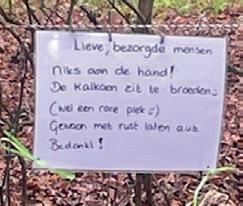 Lieve, bezorgde mensen
Niks aan de hand!
De kalkoen zit te broeden.
(wel een rare plek =)
Gewoon met rust laten a.u.b.
Bedankt!